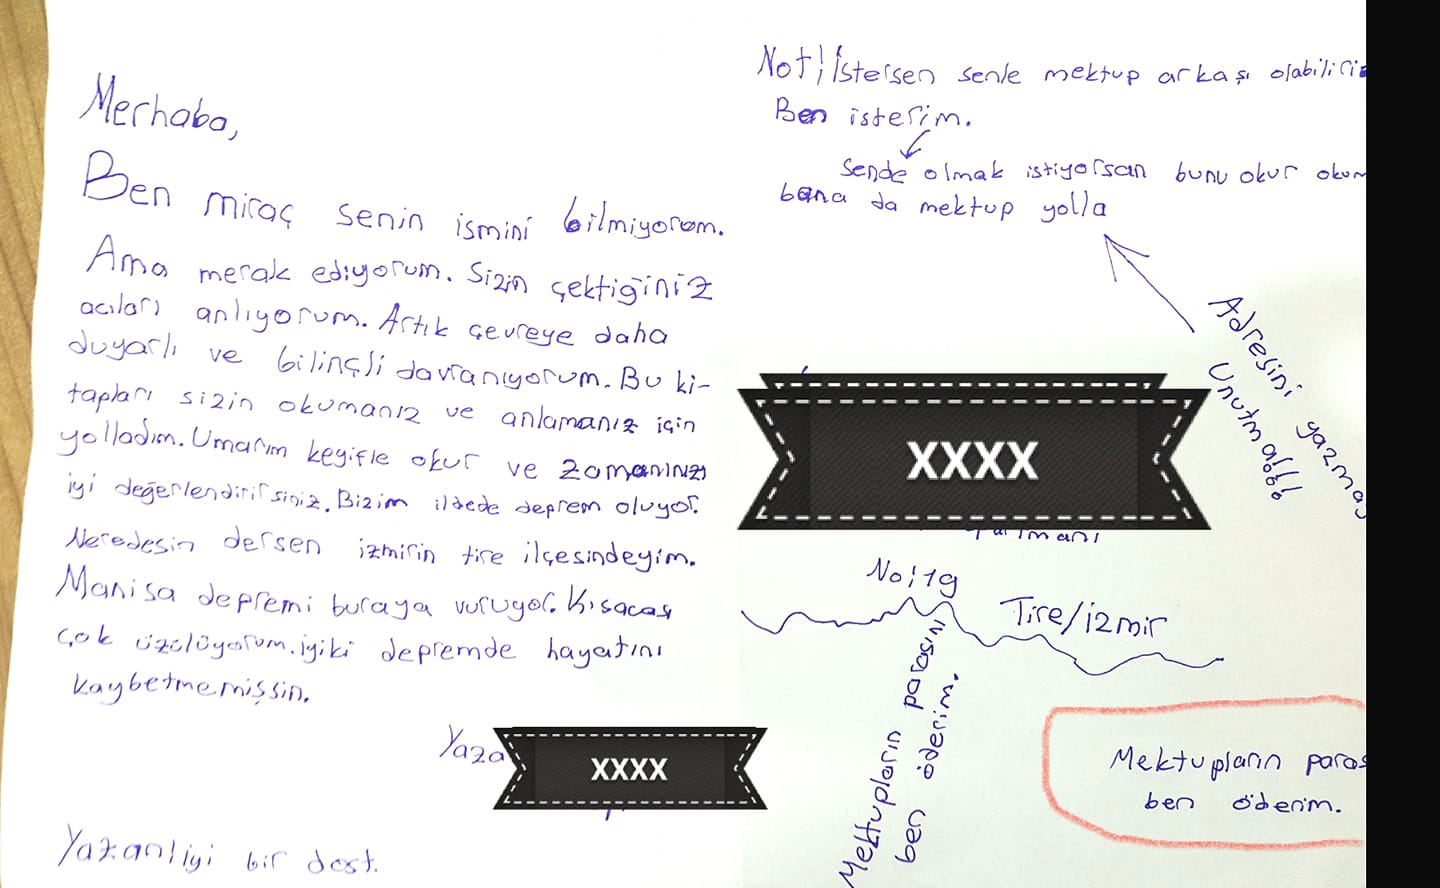 Merhaba,
Ben miraç senin ismini bilmiyorom.
Ama merak ediyorum. Sizin çektiğiniz
acıları anlıyorum. Artık çevreye daha
duyarlı ve bilinçli davranıyorum. Bu ki-
tapları sizin okumanız ve anlamanız için
yolladım. Umarım keyifle okur ve zamanınızı
iyi değerlendirirsiniz. Bizim ildede deprem oluyor.
Neredesin dersen izmirin tire ilçesindeyim.
Manisa depremi buraya vuruyor. Kısacası
çok üzülüyorum. iyiki depremde hayatını
kaybetmemişsin.
Yaza
XXXX
Yazan: iyi bir dost.
Not: İstersen senle mektup arkaşı olabiliriz
Ben isterim.
Sende olmak istiyorsan bunu okur okum
bana da mektup yolla
Adresini yazmay
Unutma
XXXX
No: 19
Tire/izmir
Mektupların parasını
ben öderim.
Mektupların paras
ben öderim.